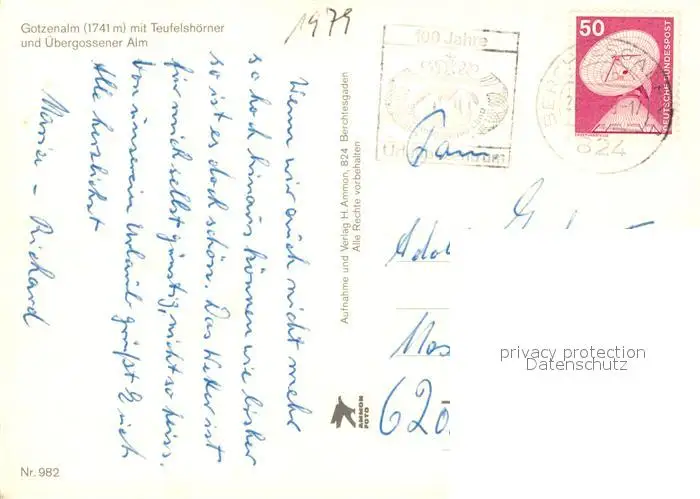 Gotzenalm (1741 m) mit Teufelshörner
und Übergossener Alm
1979
Wenn wir auch nicht mehr
so hoch hinaus können wie bisher
so ist es doch schön. Das Wetter ist
für mich selbst günstig, nicht so heiss.
Von unserem Urlaub grüßt Euch
Alle herzlichst
Marie - Richard
Aufnahme und Verlag H. Ammon, 824 Berchtesgaden
Alle Rechte vorbehalten
AMMON
FOTO
100 Jahre
50
DEUTSCHE BUNDESPOST
824
Fam.
Adol
Mos
620
privacy protection
Datenschutz
Nr. 982